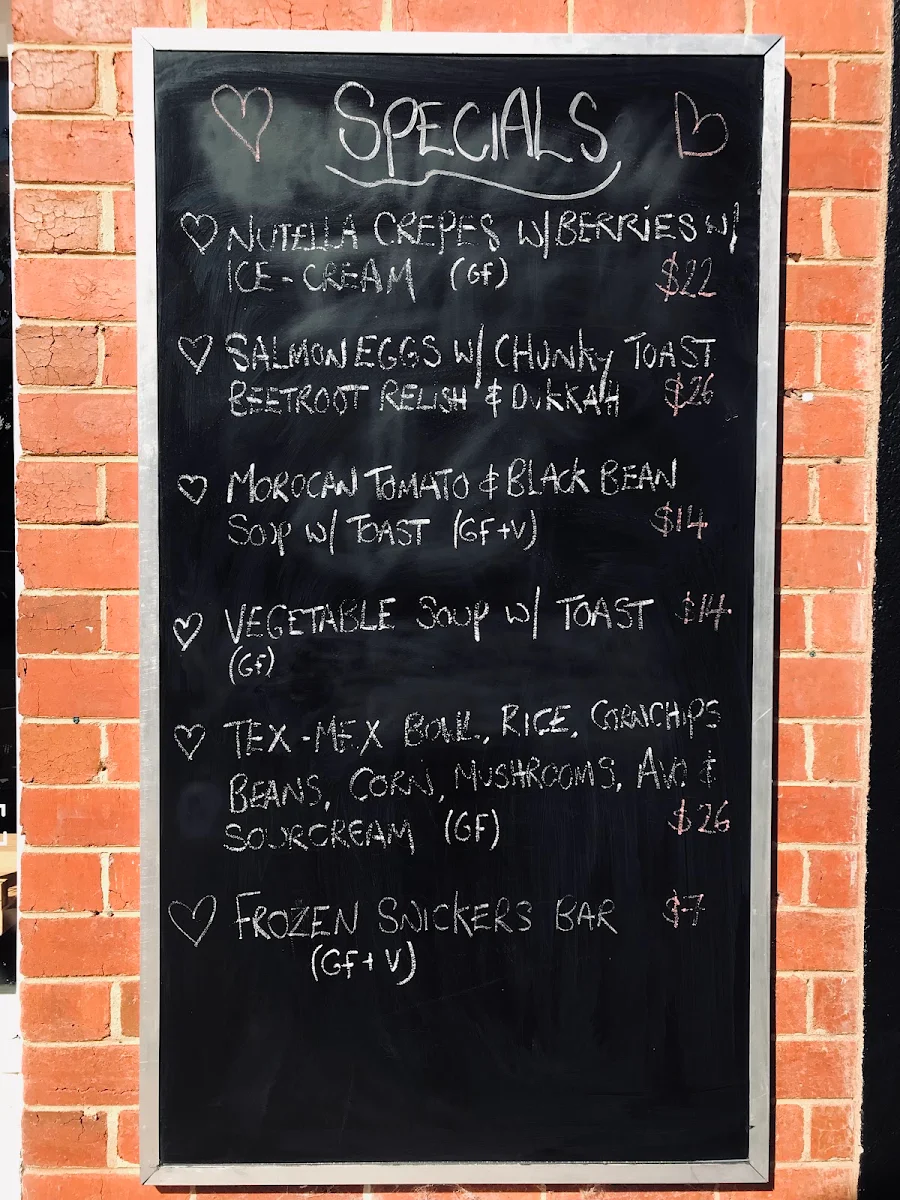 SPECIALS
NUTELLA CREPES W/BERRIES W/
ICE-CREAM (GF) $22
SALMON EGGS W/ CHUNKY TOAST
BEETROOT RELISH & DUKKAH $26
MOROCAN TOMATO & BLACK BEAN
SOUP W/ TOAST (GF+V) $14
VEGETABLE SOUP W/ TOAST $14
(GF)
TEX-MEX BOWL, RICE, CORNCHIPS
BEANS, CORN, MUSHROOMS, AVO &
SOURCREAM (GF) $26
FROZEN SNICKERS BAR $7
(GF+V)